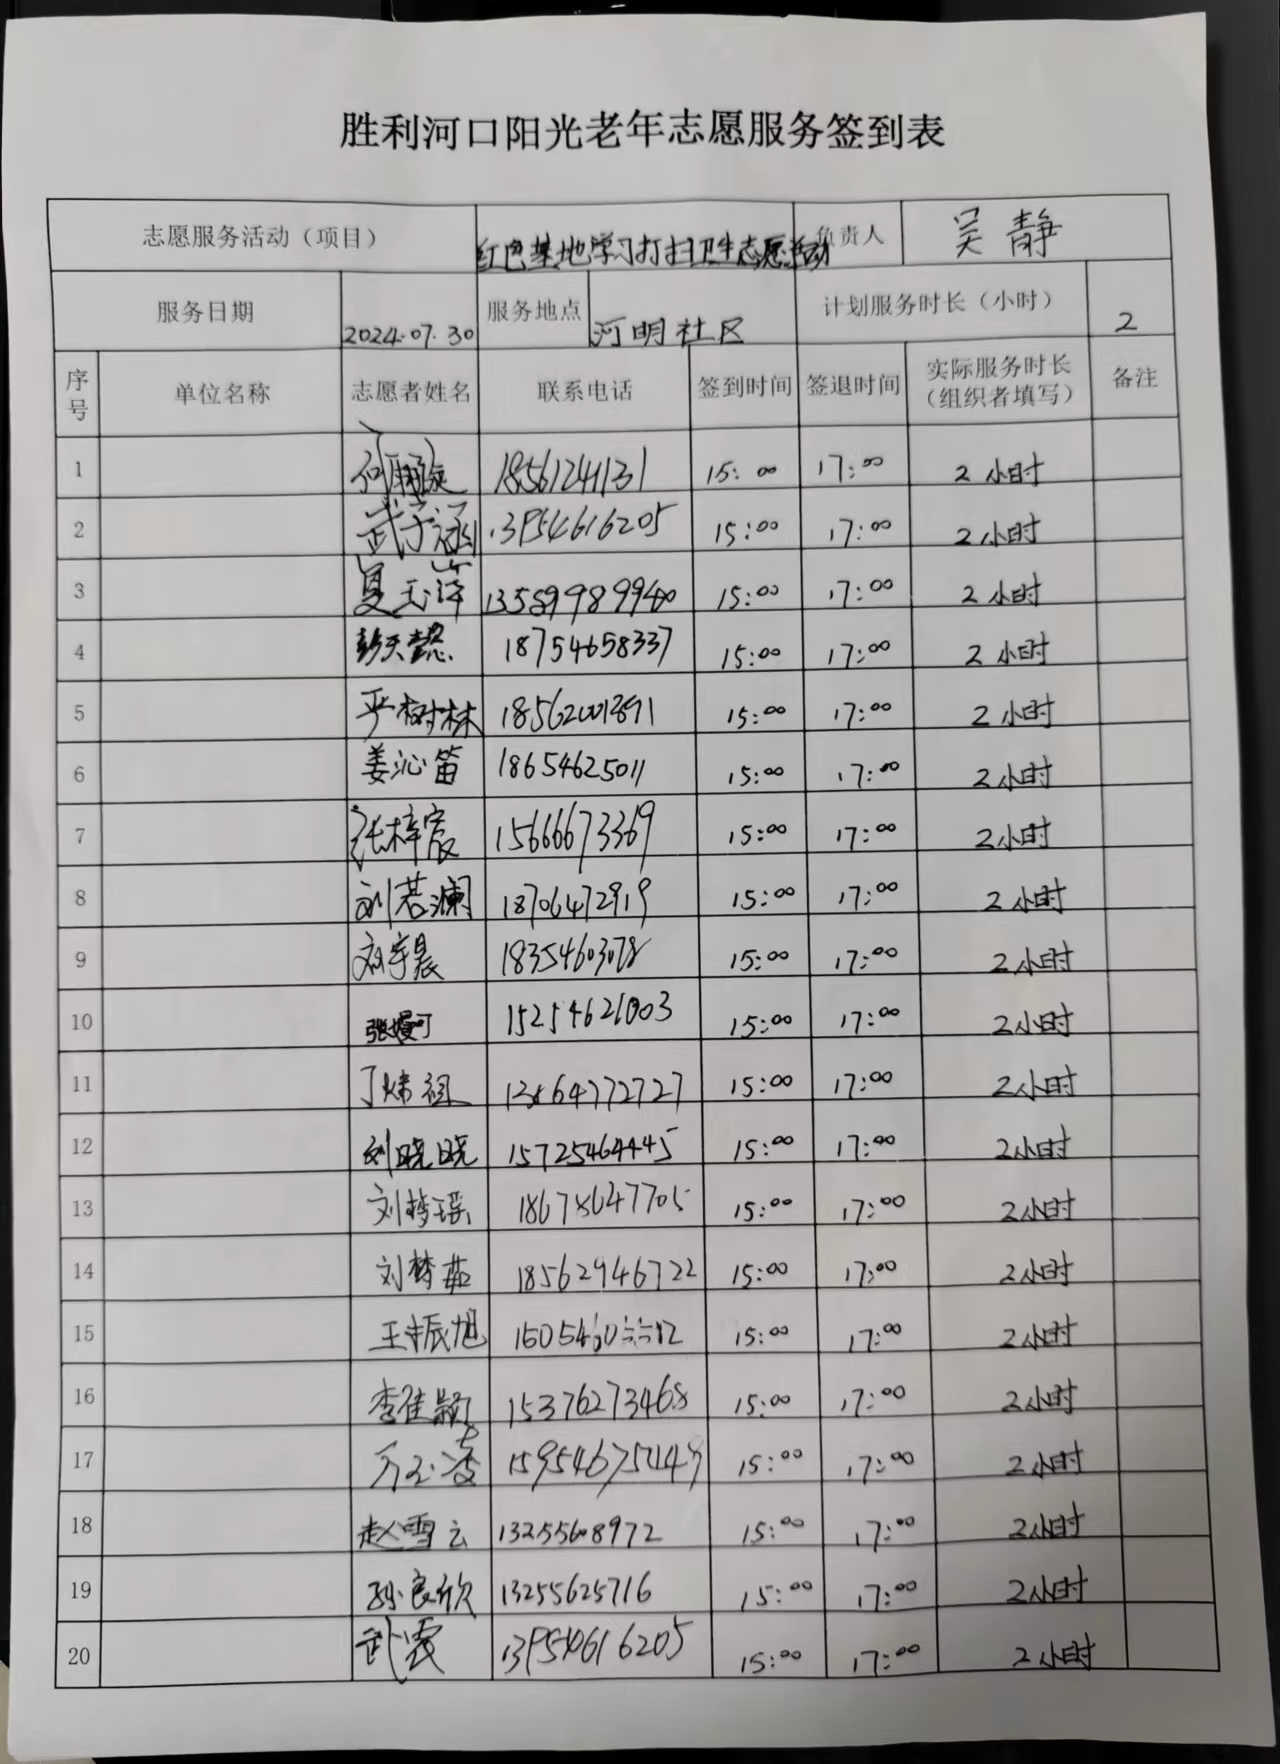 胜利河口阳光老年志愿服务签到表
志愿服务活动（项目） 红色基地学习打扫卫生志愿活动 负责人 吴静
服务日期 2024.07.30 服务地点 河明社区 计划服务时长（小时） 2
序号 单位名称 志愿者姓名 联系电话 签到时间 签退时间 实际服务时长（组织者填写） 备注
1 15:00 17:00 2小时
2 武子涵 13954616205 15:00 17:00 2小时
3 夏玉萍 15:00 17:00 2小时
4 彭天懿 18754658337 15:00 17:00 2小时
5 严树林 15:00 17:00 2小时
6 姜沁笛 18654625011 15:00 17:00 2小时
7 张梓宸 15666673369 15:00 17:00 2小时
8 刘若澜 18706472919 15:00 17:00 2小时
9 刘宇晨 18354603078 15:00 17:00 2小时
10 张嫚可 15:00 17:00 2小时
11 丁炜祖 13864772727 15:00 17:00 2小时
12 刘晓晓 15725464445 15:00 17:00 2小时
13 刘梦瑶 18678647705 15:00 17:00 2小时
14 刘梦茹 18562946722 15:00 17:00 2小时
15 王振旭 15:00 17:00 2小时
16 李佳颖 15376273468 15:00 17:00 2小时
17 万玉凌 15:00 17:00 2小时
18 赵雪云 13255608972 15:00 17:00 2小时
19 孙良欣 13255625716 15:00 17:00 2小时
20 武震 13954616205 15:00 17:00 2小时